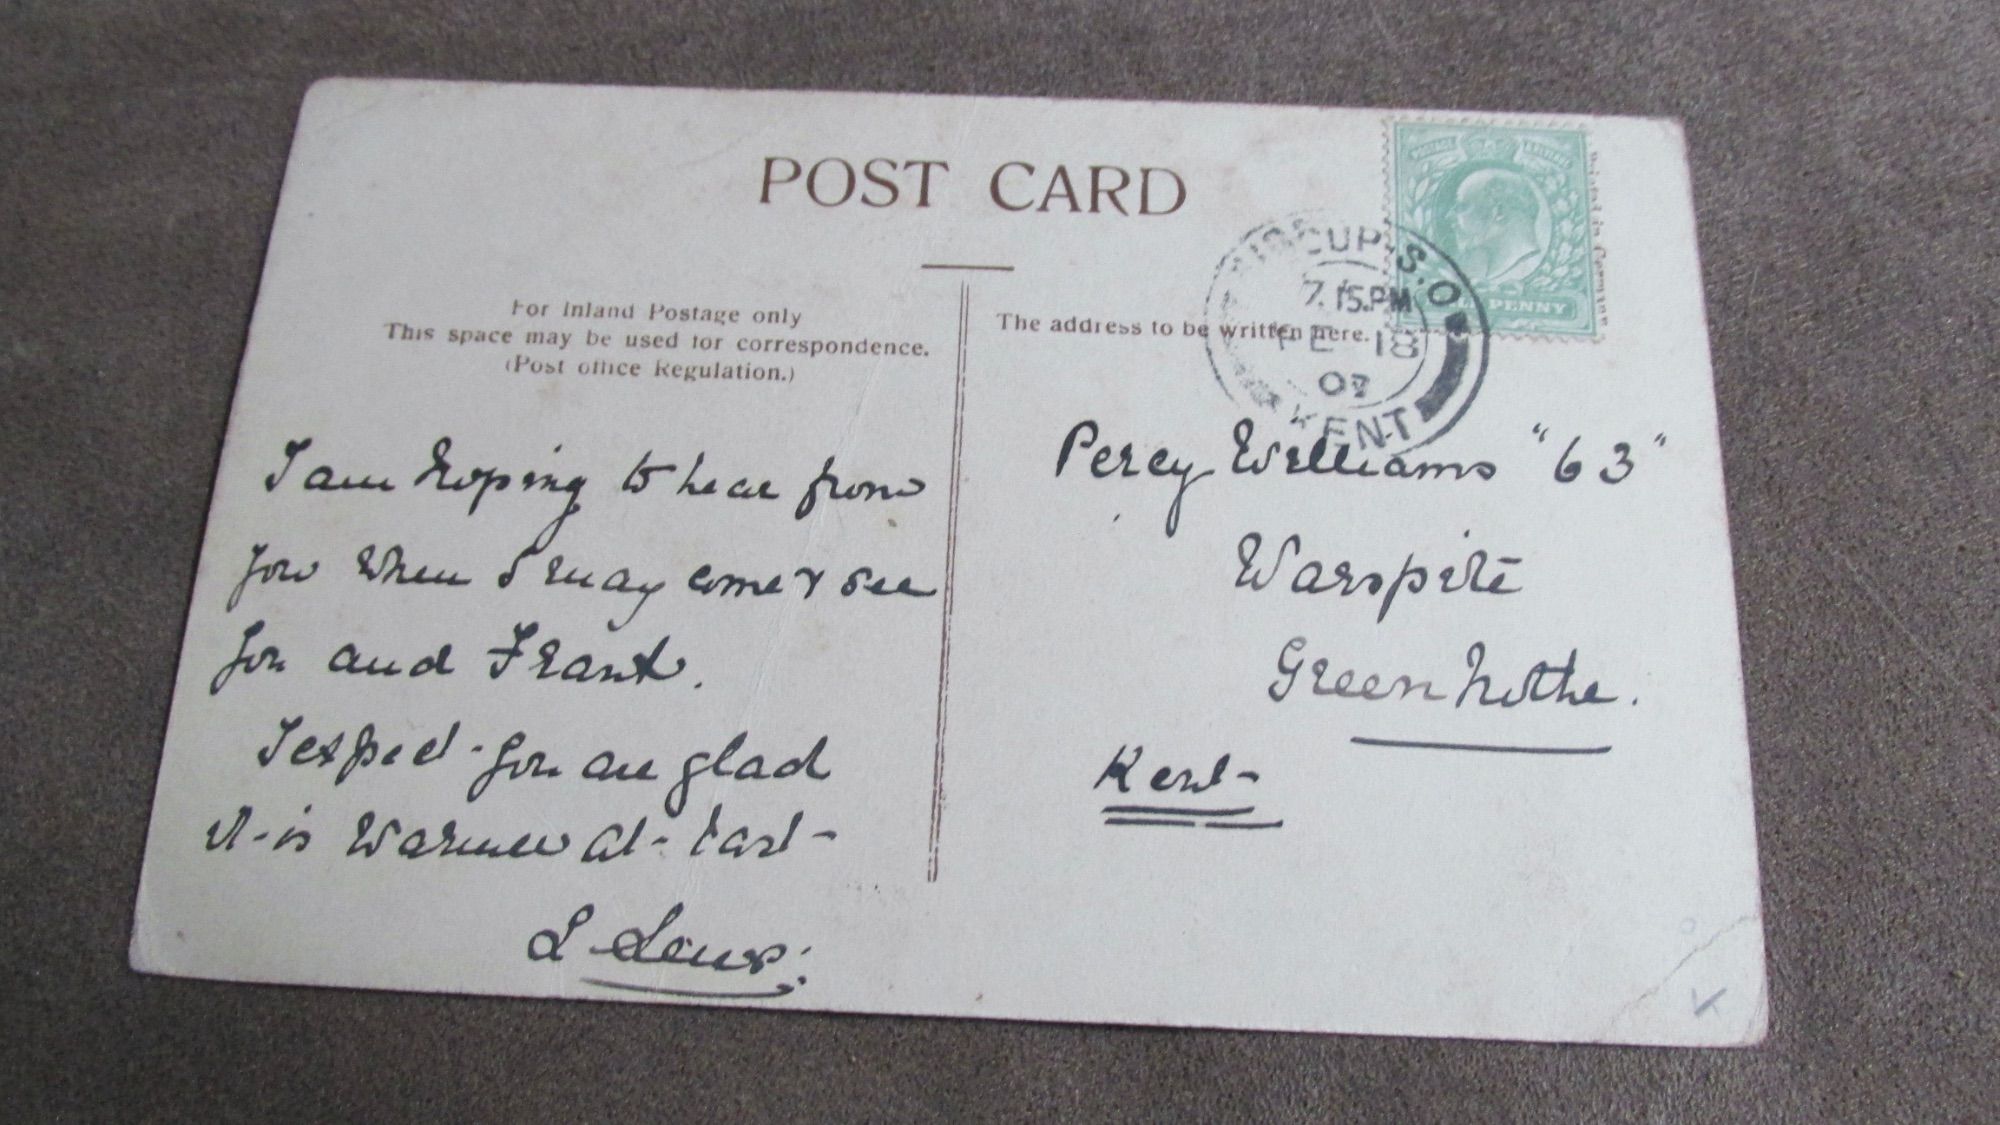 POST CARD
For Inland Postage only
This space may be used for correspondence.
(Post office Regulation.)
The address to be written here.
Printed in Germany
POSTAGE REVENUE
PENNY
SIDCUP. S.O
7.15.PM
FE 18
07
KENT
I am hoping to hear from
you when I may come & see
you and Frank.
I expect you are glad
it is warmer at last
Percy Williams "63"
Warspite
Greenhithe.
Kent